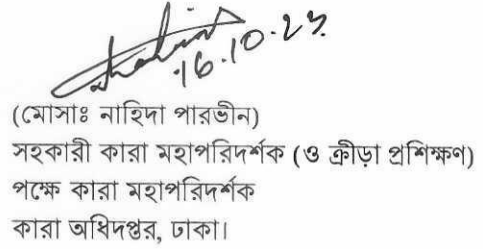 16.10.23
(মোসাঃ নাহিদা পারভীন)
সহকারী কারা মহাপরিদর্শক (ও ক্রীড়া প্রশিক্ষণ)
পক্ষে কারা মহাপরিদর্শক
কারা অধিদপ্তর, ঢাকা।